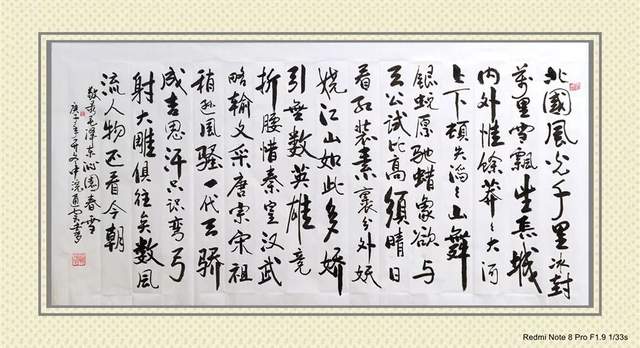 北國風光千里冰封
萬里雪飄望長城
内外惟餘莽々大河
上下頓失滔々山舞
銀蛇原馳蜡象欲与
天公試比高須晴日
看红装素裹分外妖
娆江山如此多娇
引無數英雄竞
折腰惜秦皇汉武
略输文采唐宗宋祖
稍逊風骚一代天骄
成吉思汗只识弯弓
射大雕俱往矣数風
流人物还看今朝
敬录毛泽東沁園春雪
庚子年
Redmi Note 8 Pro F1.9 1/33s